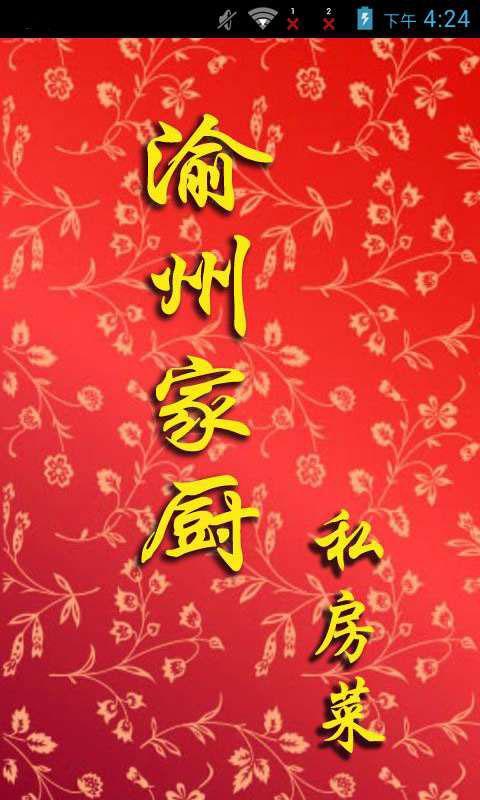 1 2 下午 4:24
渝州家厨
私房菜